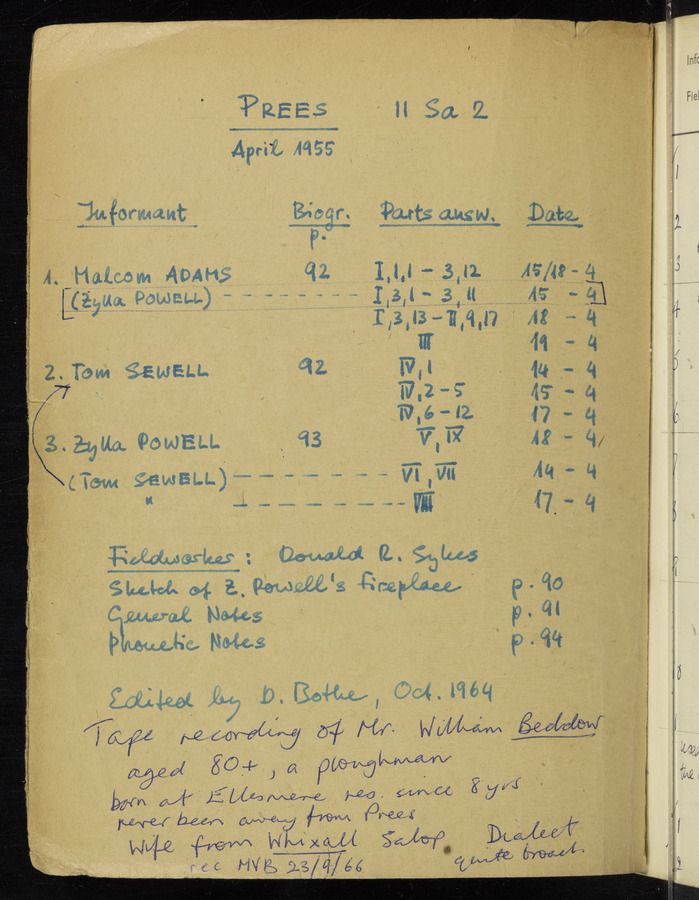 PREES II Sa 2
April 1955
Informant Biogr. p. Parts answ. Date
1. Malcom ADAMS 92 I,1,1 - 3,12 15/18 - 4
[(Zylla POWELL) - - - - - - - - I,3,1 - 3,11 15 - 4]
I,3,13 - II,9,17 18 - 4
III 19 - 4
2. Tom SEWELL 92 IV,1 14 - 4
IV,2 - 5 15 - 4
IV,6 - 12 17 - 4
3. Zylla POWELL 93 V, IX 18 - 4
(Tom SEWELL) - - - - - - - - VI, VII 14 - 4
" - - - - - - - - VIII 17. - 4
Fieldworker : Donald R. Sykes
Sketch of Z. Powell's fireplace p. 90
General Notes p. 91
Phonetic Notes p. 94
Edited by D. Bothe, Oct. 1964
Tape recording of Mr. William Beddow
aged 80+, a ploughman
born at Ellesmere res. since 8 yrs
never been away from Prees
Wife from Whixall Salop Dialect
quite broad.
rec MVB 23/9/66
Info
Fiel
1
2
3
4
5
6
7
8
9
10